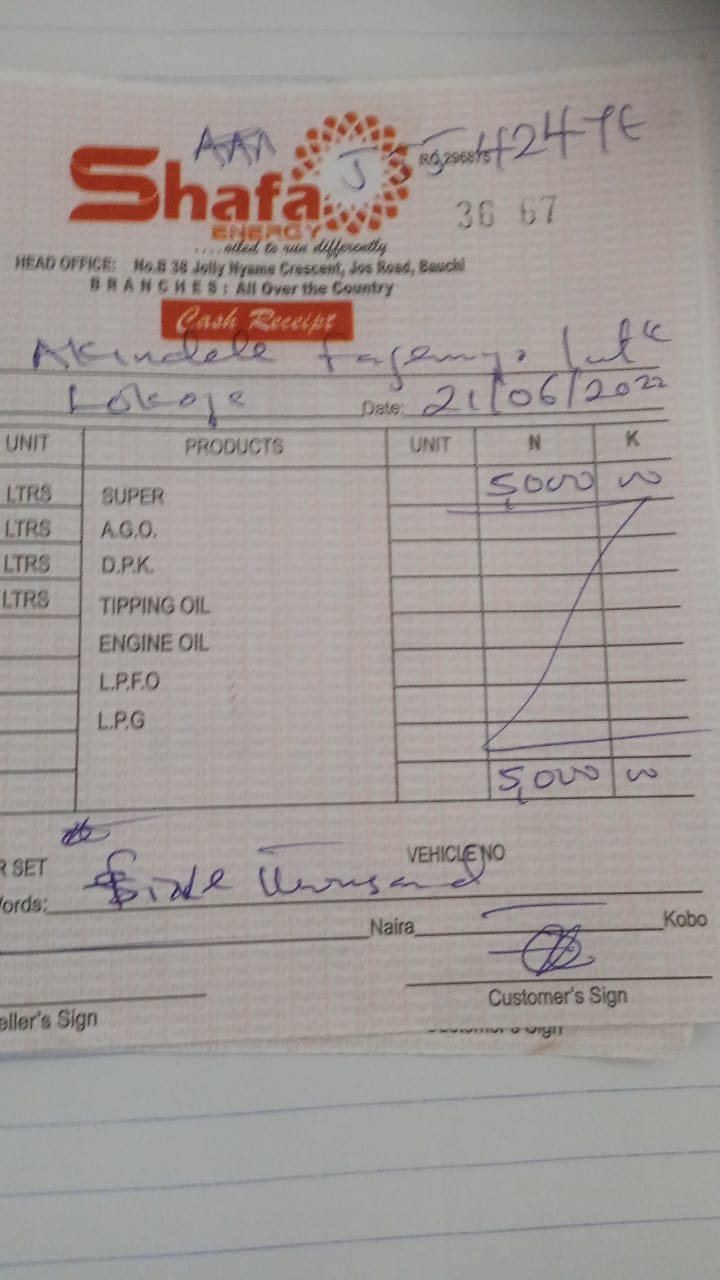 AAA J 5 424 YE
Shafa
ENERGY
RC 296875
36 67
....otled to run differently
HEAD OFFICE: No.B 38 Jolly Nyame Crescent, Jos Road, Bauchi
BRANCHES: All Over the Country
Cash Receipt
Akindele
Lokoja Date: 21/06/2022
UNIT PRODUCTS UNIT N K
LTRS SUPER 5,000 00
LTRS A.G.O.
LTRS D.P.K.
LTRS TIPPING OIL
ENGINE OIL
L.P.F.O
L.P.G
5,000 00
R SET VEHICLE NO
ords: thousand
Naira Kobo
eller's Sign Customer's Sign